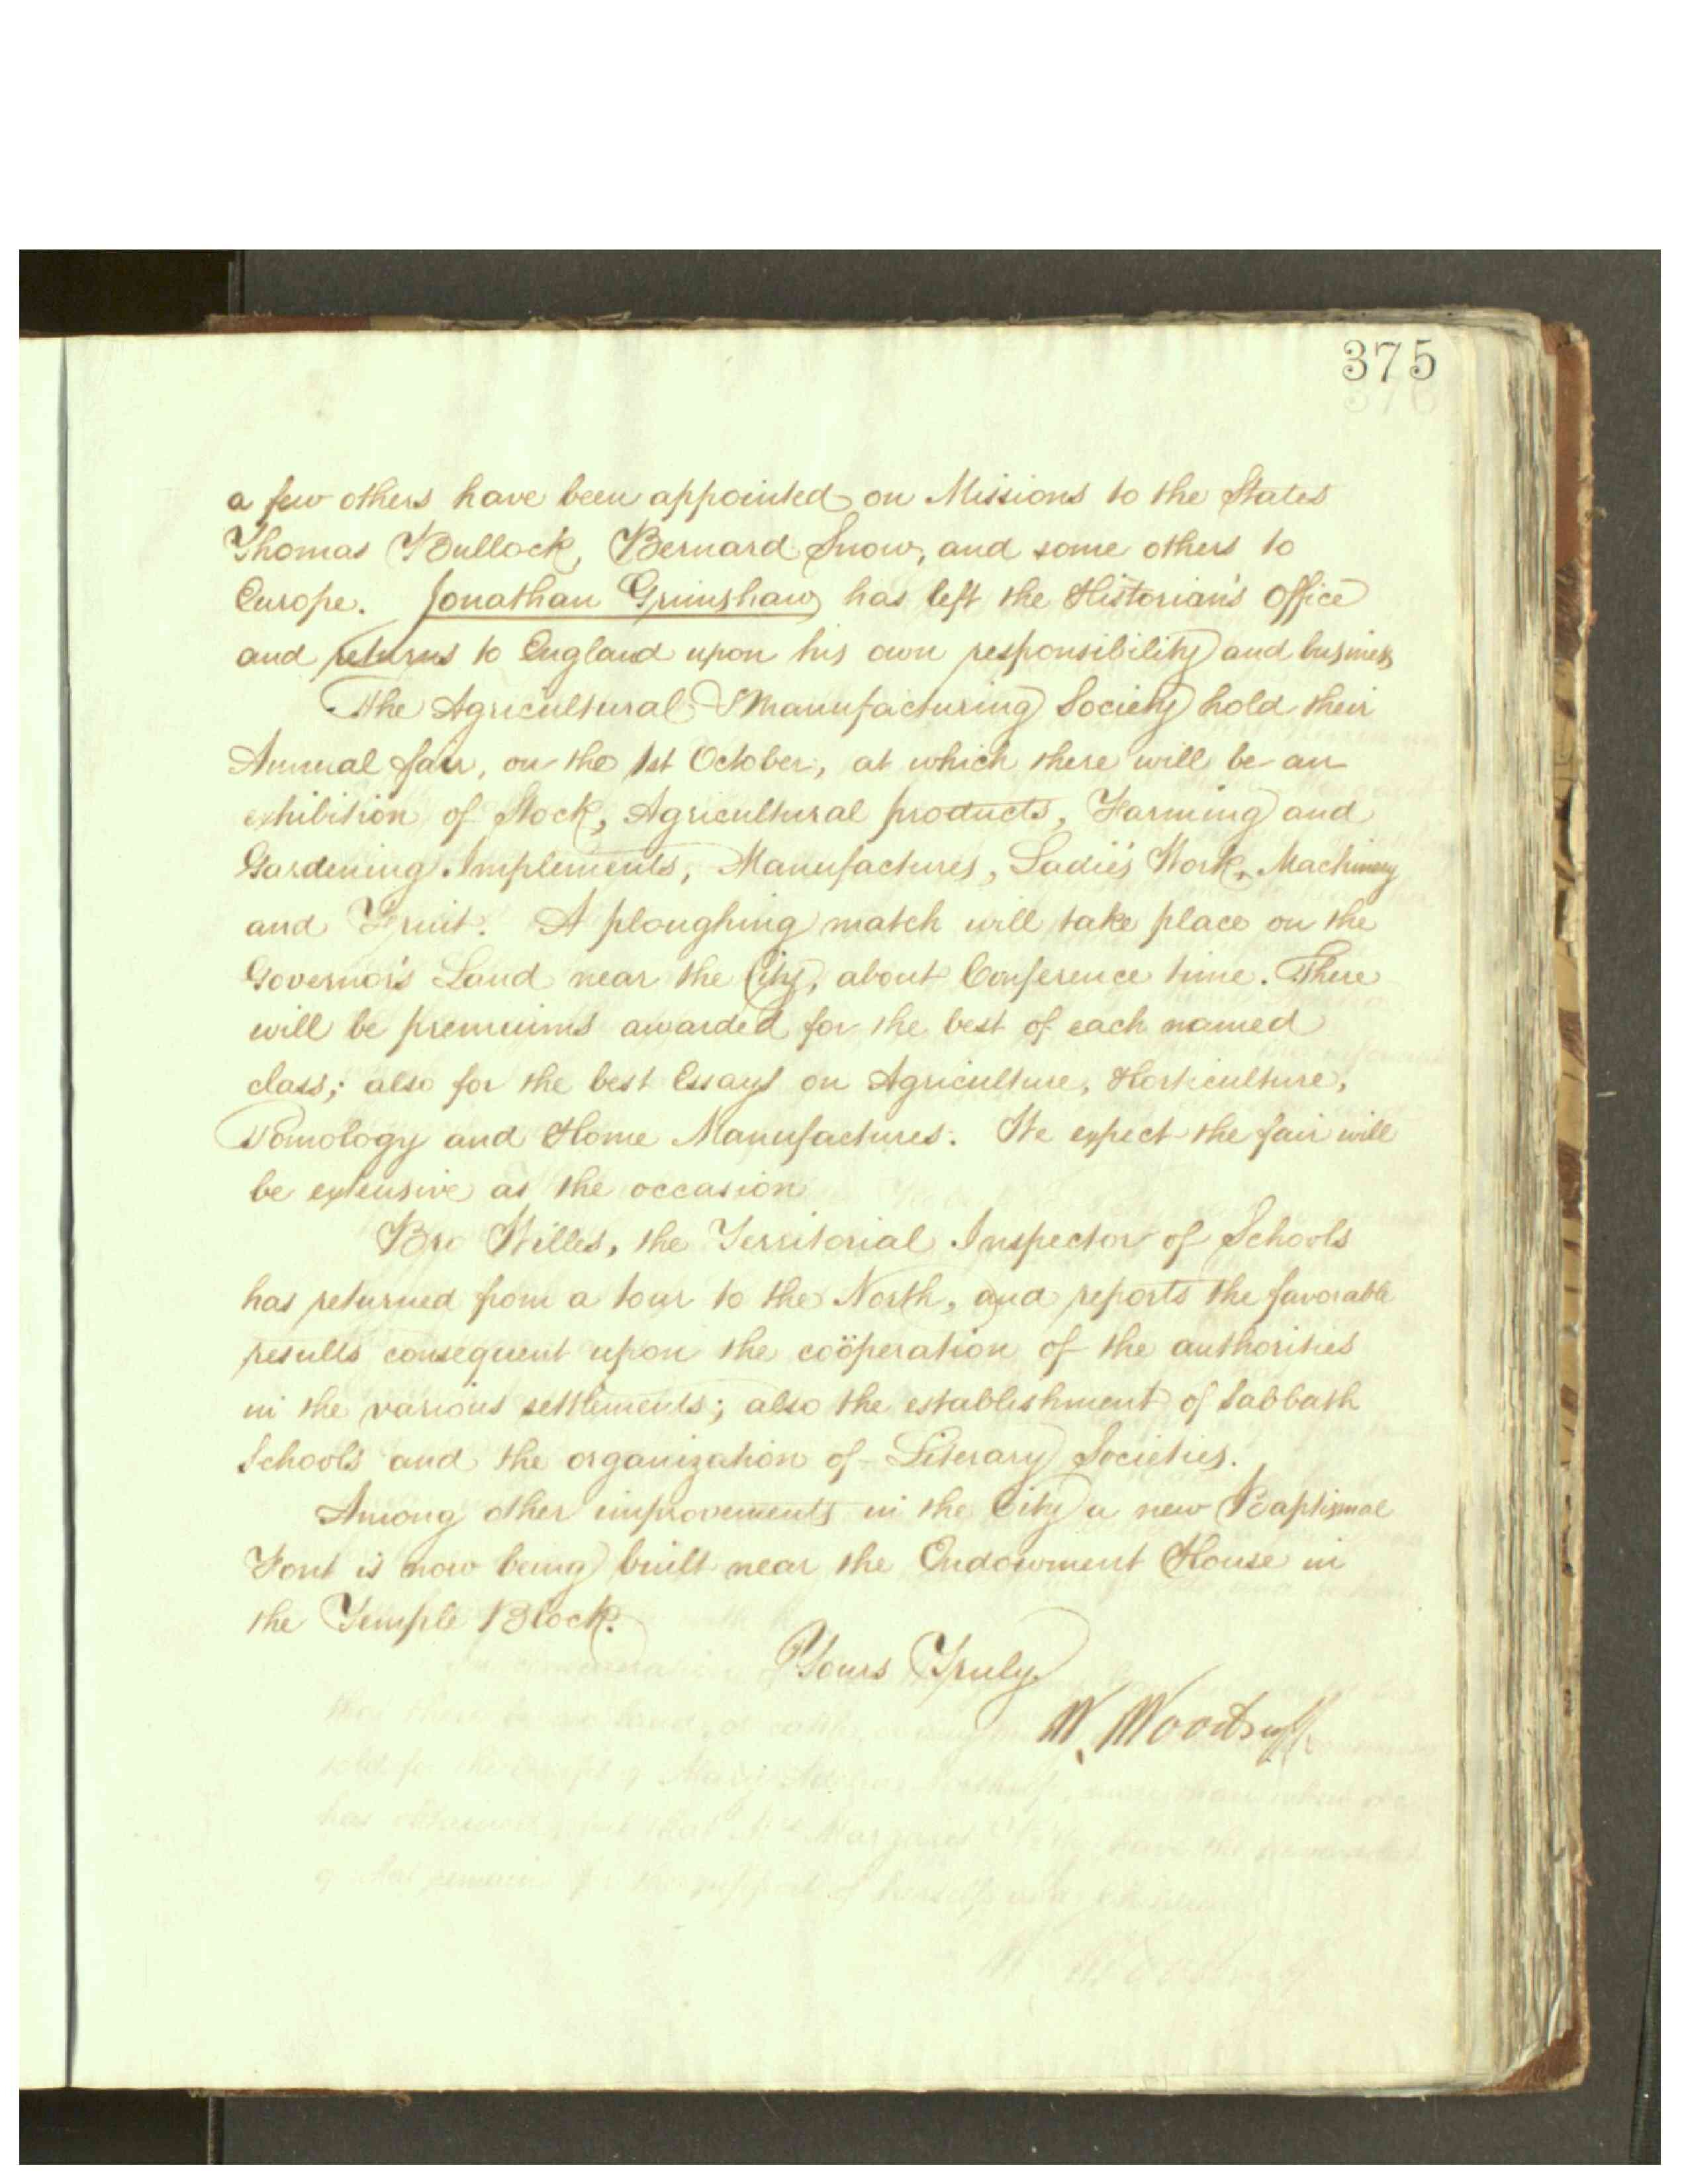 375
a few others have been appointed on Missions to the States
Thomas Bullock, Bernard Snow, and some others to
Europe. Jonathan Grimshaw has left the Historian's Office
and returns to England upon his own responsibility and business
The Agricultural & Manufacturing Society hold their
Annual fair, on the 1st October, at which there will be an
exhibition of Stock, Agricultural products, Farming and
Gardening Implements, Manufactures, Ladies' Work, Machinery
and Fruit. A ploughing match will take place on the
Governor's Land near the City, about Conference time. There
will be premiums awarded for the best of each named
class; also for the best Essays on Agriculture, Horticulture,
Pomology and Home Manufactures. We expect the fair will
be extensive as the occasion
Bro Willes, the Territorial Inspector of Schools
has returned from a tour to the North, and reports the favorable
results consequent upon the coöperation of the authorities
in the various settlements; also the establishment of Sabbath
Schools and the organization of Literary Societies.
Among other improvements in the City a new Baptismal
Font is now being built near the Endowment House in
the Temple Block.
Yours Truly
W. Woodruff